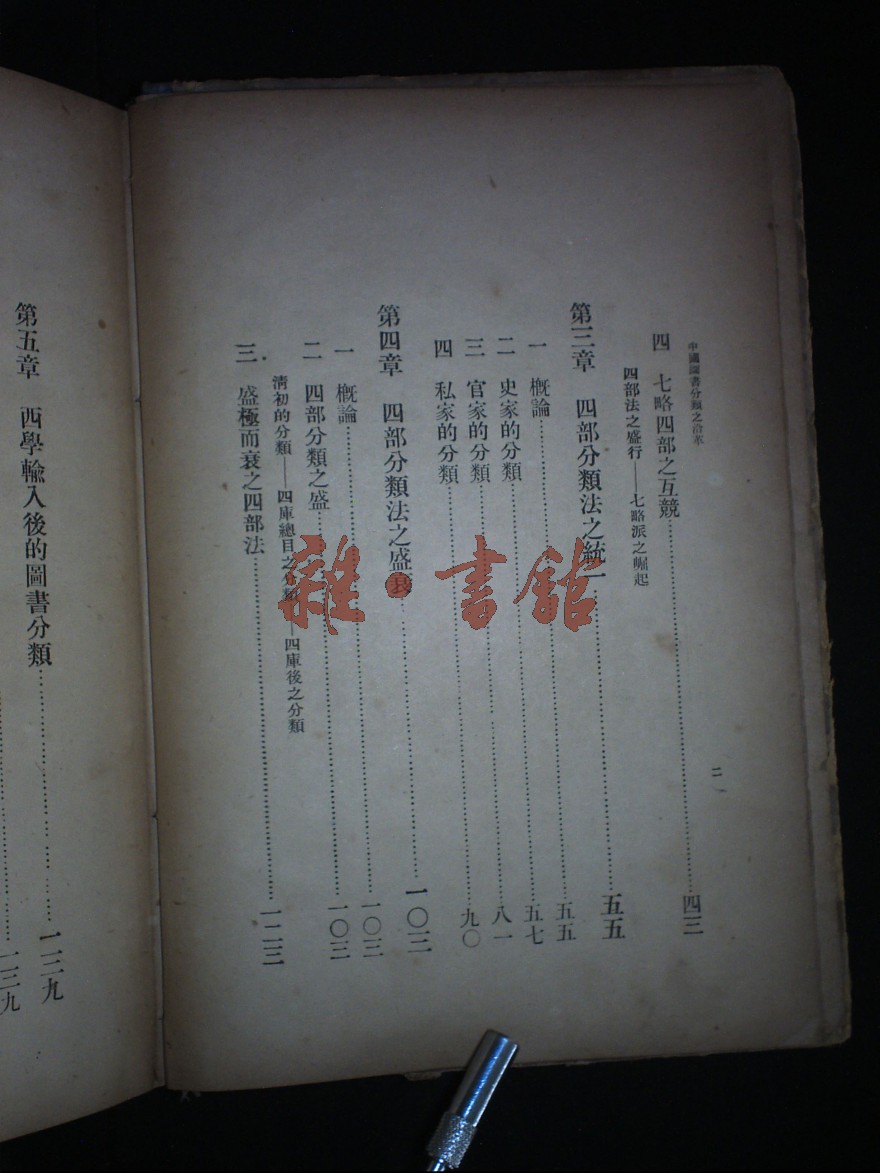 中國圖書分類之沿革
二
四 七略四部之互競……四三
四部法之盛行——七略派之崛起
第三章 四部分類法之統一……五五
一 概論……五五
二 史家的分類……五七
三 官家的分類……八一
四 私家的分類……九〇
第四章 四部分類法之盛衰……一〇三
一 概論……一〇三
二 四部分類之盛……一〇三
清初的分類——四庫總目之分類——四庫後之分類
三 盛極而衰之四部法……一二三
第五章 西學輸入後的圖書分類……一三九
……一三九
雜·書館